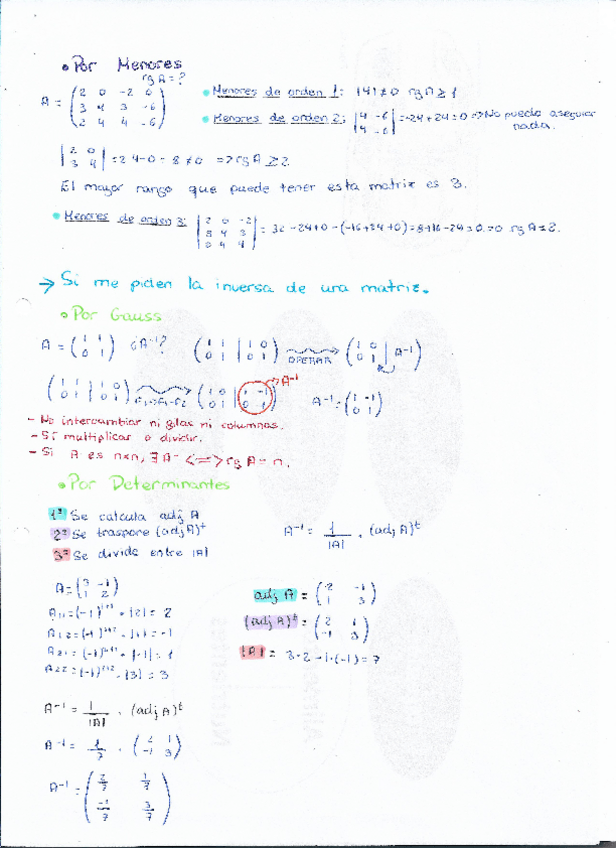 • Por Menores
rg A = ?
A = (2 0 -2 0 / 3 4 3 -6 / 2 4 4 -6)
• Menores de orden 1: |4| ≠ 0 rg A ≥ 1
• Menores de orden 2: |4 -6 / 4 -6| = -24 + 24 = 0 => No puedo asegurar nada.
|2 0 / 3 4| = 2 4 - 0 = 8 ≠ 0 => rg A ≥ 2
El mayor rango que puede tener esta matriz es 3.
• Menores de orden 3: = 32 - 24 + 0 - (-16 + 24 + 0) = 8 + 16 - 24 = 0 => rg A = 2.
→ Si me piden la inversa de una matriz.
• Por Gauss
A = (1 1 / 0 1) ¿A⁻¹? (1 1 | 1 0 / 0 1 | 0 1) OPERAR (1 0 / 0 1 | A⁻¹)
(1 1 | 1 0 / 0 1 | 0 1) F1=F1-F2 (1 0 | 1 -1 / 0 1 | 0 1) → A⁻¹ A⁻¹ = (1 -1 / 0 1)
- No intercambiar ni filas ni columnas.
- Sí multiplicar o dividir.
- Si A es n×n, ∃ A⁻ <=> rg A = n.
• Por Determinantes
1º Se calcula adj A
2º Se traspone (adj A)ᵗ
3º Se divide entre |A|
A⁻¹ = 1/|A| · (adj A)ᵗ
A = (3 -1 / 1 2)
A₁₁ = (-1)¹⁺¹ · |2| = 2
A₁₂ = (-1)¹⁺² · |1| = -1
A₂₁ = (-1)²⁺¹ · |-1| = 1
A₂₂ = (-1)²⁺² · |3| = 3
adj A = (2 -1 / 1 3)
(adj A)ᵗ = (2 1 / -1 3)
|A| = 3·2 - 1·(-1) = 7
A⁻¹ = 1/|A| · (adj A)ᵗ
A⁻¹ = 1/7 · (2 1 / -1 3)
A⁻¹ = (2/7 1/7 / -1/7 3/7)